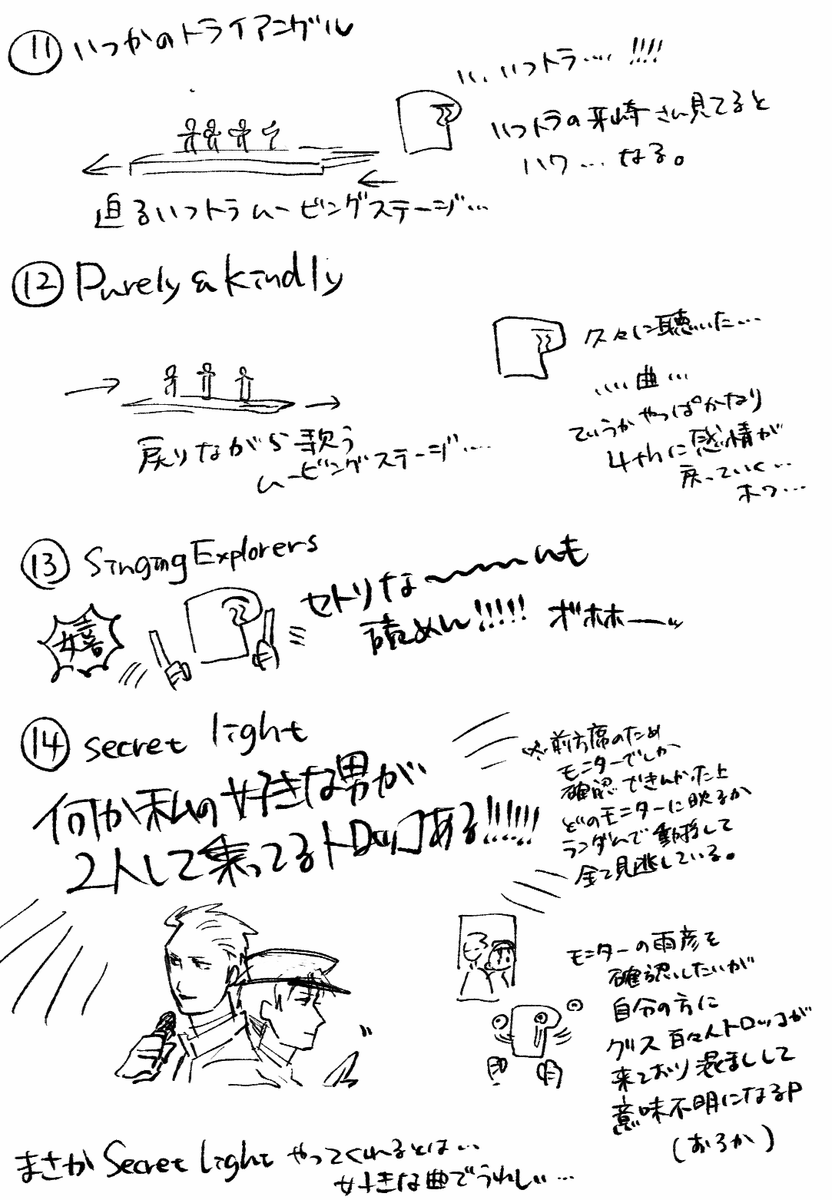 ⑪ いつかのトライアングル
い、いつトラ…!!!!
いつトラの釆崎さん見てると
ハワ…なる。
迫るいつトラムービングステージ…
⑫ Purely & kindly
久々に聴いた…
…曲…
ていうかやっぱかなり
4thに感情が
戻っていく…
ホワ…
戻りながら歌う
ムービングステージ…
⑬ Singing Explorers
嬉
セトリな〜〜〜んも
読めん!!!!! ボホホーッ
⑭ secret light
何か私の好きな男が
2人して乗ってるトロッコある!!!!!!
※前方席のため
モニターでしか
確認できんかった上
どのモニターに映るか
ランダムで動揺して
全て見逃している。
モニターの雨彦を
確認したいが
自分の方に
クリス百々人トロッコが
来ており混乱して
意味不明になるP
(おろか)
まさか Secret Light やってくれるとは…
好きな曲でうれしい…